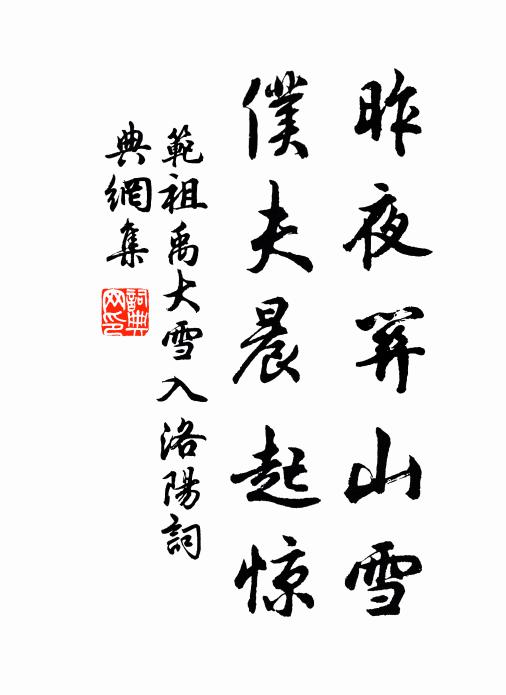 昨夜箳山雪
僕夫晨起惊
範祖禹大雪入洛陽詞
典網集
詞典網印